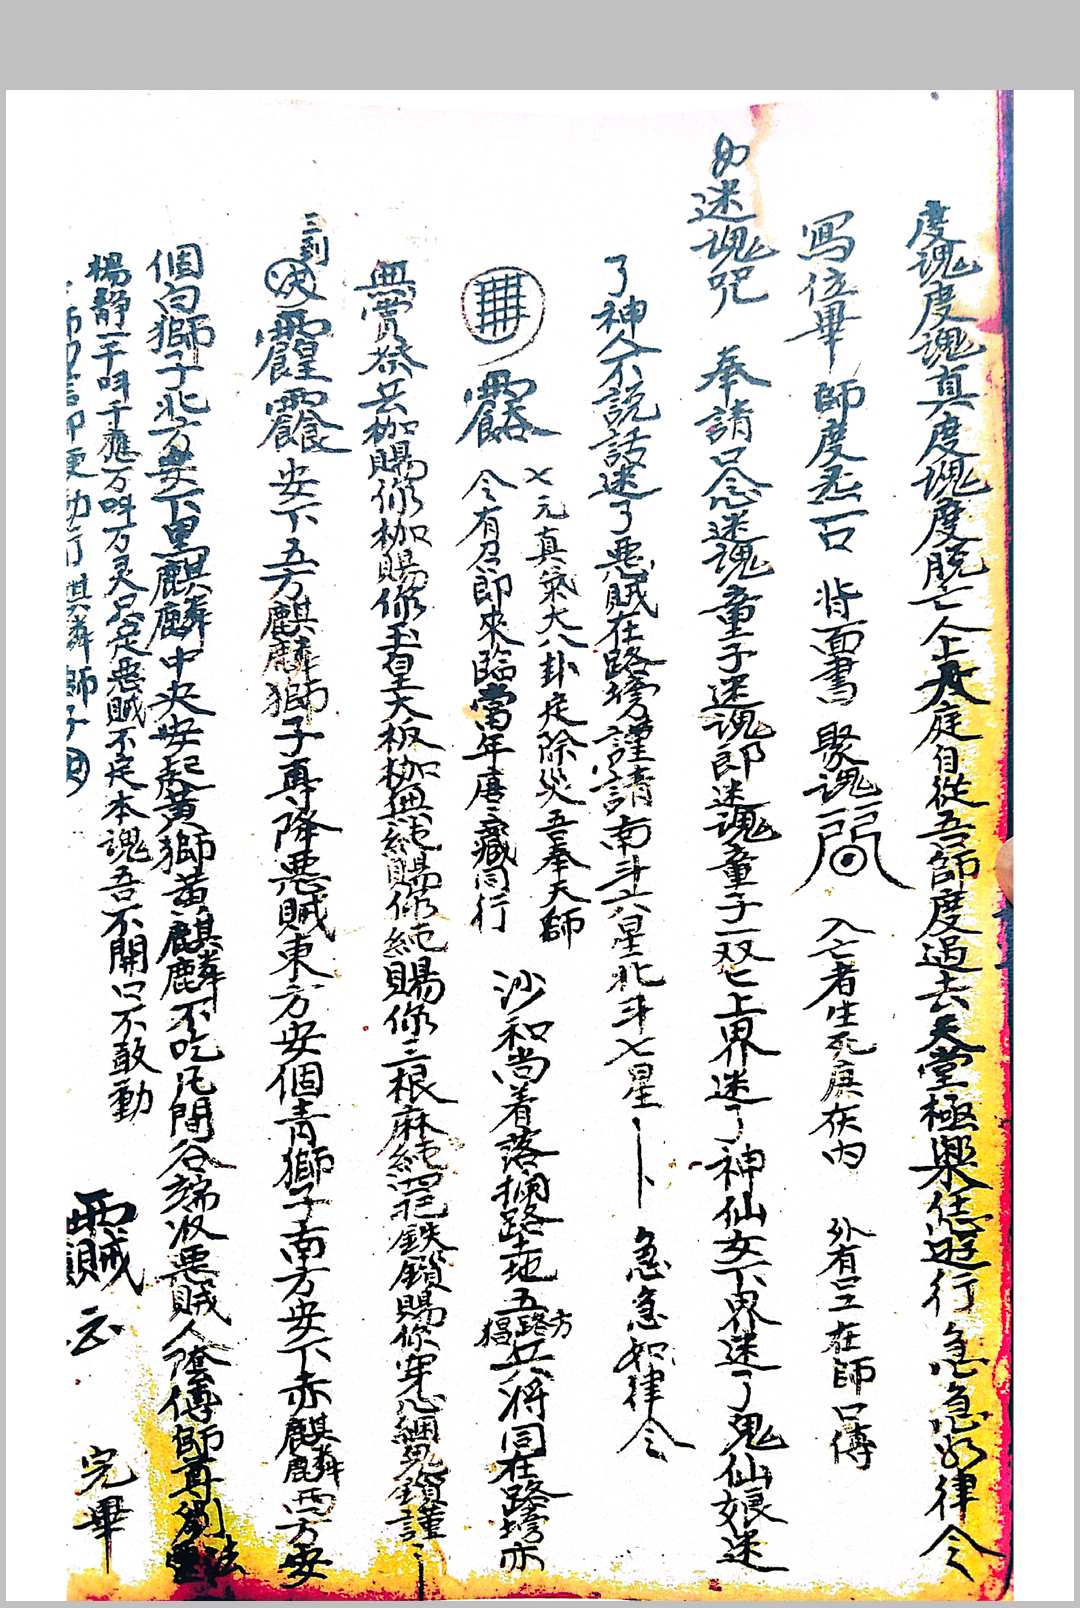 度魂度魂真度魂度脱亡人上天庭自從吾師度過去天堂極樂恁逰行 急急如律令
寫位畢 師度 背面書 聚魂 入亡者生死庚在内 外有 在師口傳
迷魂咒 奉請口念迷魂童子迷魂郎迷魂童子一双匕上界迷了神仙女下界迷了鬼仙娘迷
了神人不説話迷了惡賊在路塝謹請南斗六星北斗七星 急急如律令
七元真氣大八卦定除災吾奉天師
令有召即來臨當年唐三藏同行
沙和尚着落攔路土地五方路猖兵将同在路塝亦
無賞祭兵枷賜你枷賜你玉皇大板枷無純賜你純賜你三根麻純 鉄鎖賜你穿心綑鬼鎖謹
三剅
安下五方麒麟獅子再降惡賊東方安個青獅子南方安下赤麒麟西方安
個白獅子北方安下黒麒麟中央安起黄獅黄麒麟不吃凡間谷 惡賊人 傳師尊
楊靜一千叫千應万叫万灵只定惡賊不定本魂吾不開口不敢動
便動行麒麟師子
云 完畢